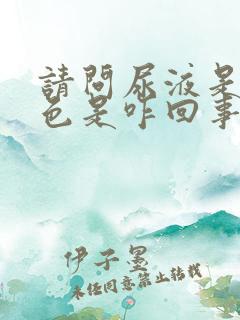 請問尿液呆
色是咋回事
伊子墨
未任同意禁止转载